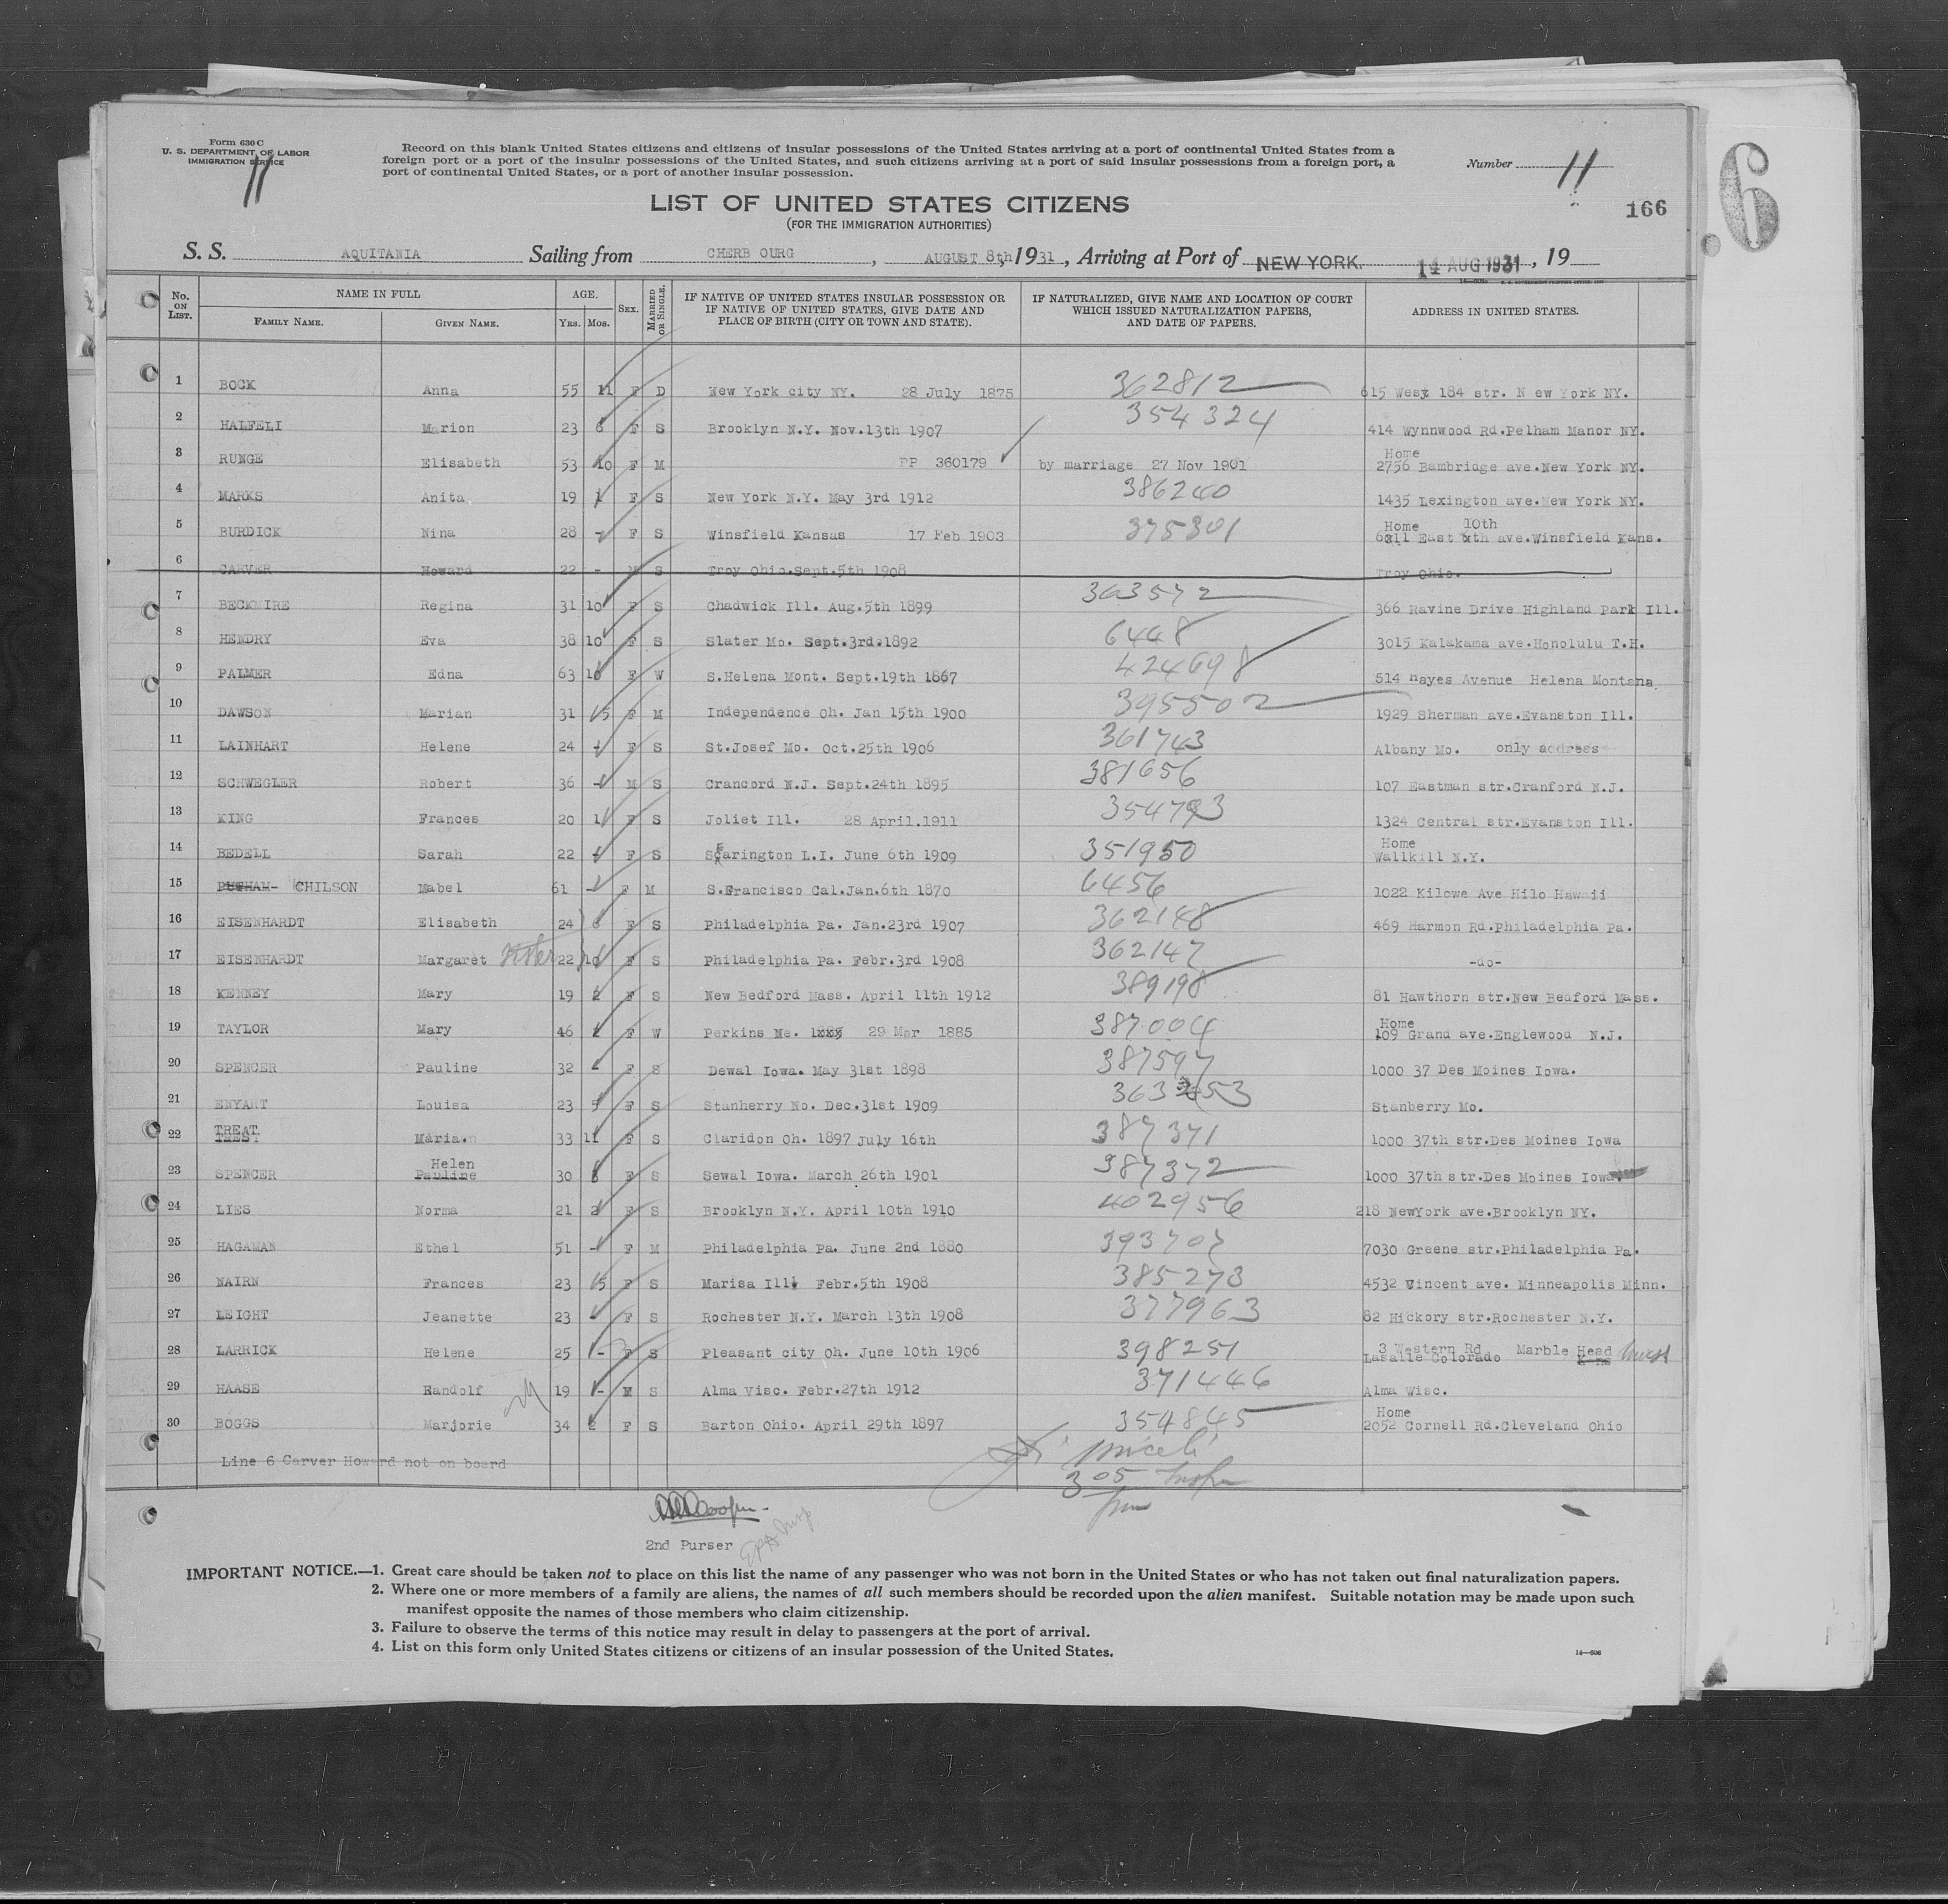 Form 630 C
U. S. DEPARTMENT OF LABOR
IMMIGRATION SERVICE
11
Record on this blank United States citizens and citizens of insular possessions of the United States arriving at a port of continental United States from a
foreign port or a port of the insular possessions of the United States, and such citizens arriving at a port of said insular possessions from a foreign port, a
port of continental United States, or a port of another insular possession.
Number 11
LIST OF UNITED STATES CITIZENS
(FOR THE IMMIGRATION AUTHORITIES)
166
6
S. S. AQUITANIA Sailing from CHERB OURG, AUGUST 8th, 1931, Arriving at Port of NEW YORK. 14 AUG 1931, 19
No. ON LIST. NAME IN FULL AGE. SEX. MARRIED OR SINGLE. IF NATIVE OF UNITED STATES INSULAR POSSESSION OR IF NATIVE OF UNITED STATES, GIVE DATE AND PLACE OF BIRTH (CITY OR TOWN AND STATE). IF NATURALIZED, GIVE NAME AND LOCATION OF COURT WHICH ISSUED NATURALIZATION PAPERS, AND DATE OF PAPERS. ADDRESS IN UNITED STATES.
FAMILY NAME. GIVEN NAME. YRS. MOS.
1 BOCK Anna 55 11 F D New York city NY. 28 July 1875 362812 615 West 184 str. N ew York NY.
2 HALFELI Marion 23 F S Brooklyn N.Y. Nov.13th 1907 354324 414 Wynnwood Rd.Pelham Manor NY.
3 RUNGE Elisabeth 53 10 F M PP 360179 by marriage 27 Nov 1901 Home 2756 Bambridge ave.New York NY.
4 MARKS Anita 19 1 F S New York N.Y. May 3rd 1912 386240 1435 Lexington ave.New York NY.
5 BURDICK Nina 28 - F S Winsfield Kansas 17 Feb 1903 375301 Home 10th East ave.Winsfield Kans.
6 CARVER Howard 22 - M S Troy Ohio.Sept.5th 1908 Troy Ohio.
7 BECKMIRE Regina 31 10 F S Chadwick Ill. Aug.5th 1899 363572 366 Ravine Drive Highland Park Ill.
8 HENDRY Eva 38 10 F S Slater Mo. Sept.3rd.1892 6448 3015 Kalakama ave.Honolulu T.H.
9 PALMER Edna 63 10 F W S.Helena Mont. Sept.19th 1867 424698 514 Hayes Avenue Helena Montana
10 DAWSON Marian 31 5 F M Independence Oh. Jan 15th 1900 395502 1929 Sherman ave.Evanston Ill.
11 LAINHART Helene 24 - F S St.Josef Mo. Oct.25th 1906 361743 Albany Mo. only address
12 SCHWEGLER Robert 36 - M S Crancord N.J. Sept.24th 1895 381656 107 Eastman str.Cranford N.J.
13 KING Frances 20 1 F S Joliet Ill. 28 April.1911 354793 1324 Central str.Evanston Ill.
14 BEDELL Sarah 22 - F S Searington L.I. June 6th 1909 351950 Home Wallkill N.Y.
15 PUTHAM- CHILSON Mabel 61 - F M S.Francisco Cal.Jan.6th 1870 6456 1022 Kilowe Ave Hilo Hawaii
16 EISENHARDT Elisabeth 24 6 F S Philadelphia Pa. Jan.23rd 1907 362148 469 Harmon Rd.Philadelphia Pa.
17 EISENHARDT Margaret sister 22 10 F S Philadelphia Pa. Febr.3rd 1908 362147 -do-
18 KENNEY Mary 19 2 F S New Bedford Mass. April 11th 1912 389198 81 Hawthorn str.New Bedford Mass.
19 TAYLOR Mary 46 2 F W Perkins Ne. 29 Mar 1885 387004 Home 109 Grand ave.Englewood N.J.
20 SPENCER Pauline 32 - F S Dewal Iowa. May 31st 1898 387597 1000 37 Des Moines Iowa.
21 ENYART Louisa 23 5 F S Stanherry No. Dec.31st 1909 363353 Stanberry Mo.
22 TREAT Maria 33 11 F S Claridon Oh. 1897 July 16th 387371 1000 37th str.Des Moines Iowa
23 SPENCER Helen Pauline 30 F S Sewal Iowa. March 26th 1901 387372 1000 37th str.Des Moines Iowa.
24 LIES Norma 21 2 F S Brooklyn N.Y. April 10th 1910 402956 218 NewYork ave.Brooklyn NY.
25 HAGAMAN Ethel 51 - F M Philadelphia Pa. June 2nd 1880 393707 7030 Greene str.Philadelphia Pa.
26 NAIRN Frances 23 5 F S Marisa Ill. Febr.5th 1908 385273 4532 Vincent ave. Minneapolis Minn.
27 LEIGHT Jeanette 23 - F S Rochester N.Y. March 13th 1908 377963 82 Hickory str.Rochester N.Y.
28 LARRICK Helene 25 - F S Pleasant city Oh. June 10th 1906 398251 3 Western Rd Marble Head Lasalle Colorado
29 HAASE Randolf 19 - M S Alma Visc. Febr.27th 1912 371446 Alma Wisc.
30 BOGGS Marjorie 34 2 F S Barton Ohio. April 29th 1897 354845 Home 2052 Cornell Rd.Cleveland Ohio
Line 6 Carver Howard not on board
305
2nd Purser
IMPORTANT NOTICE.—1. Great care should be taken not to place on this list the name of any passenger who was not born in the United States or who has not taken out final naturalization papers.
2. Where one or more members of a family are aliens, the names of all such members should be recorded upon the alien manifest. Suitable notation may be made upon such
manifest opposite the names of those members who claim citizenship.
3. Failure to observe the terms of this notice may result in delay to passengers at the port of arrival.
4. List on this form only United States citizens or citizens of an insular possession of the United States.